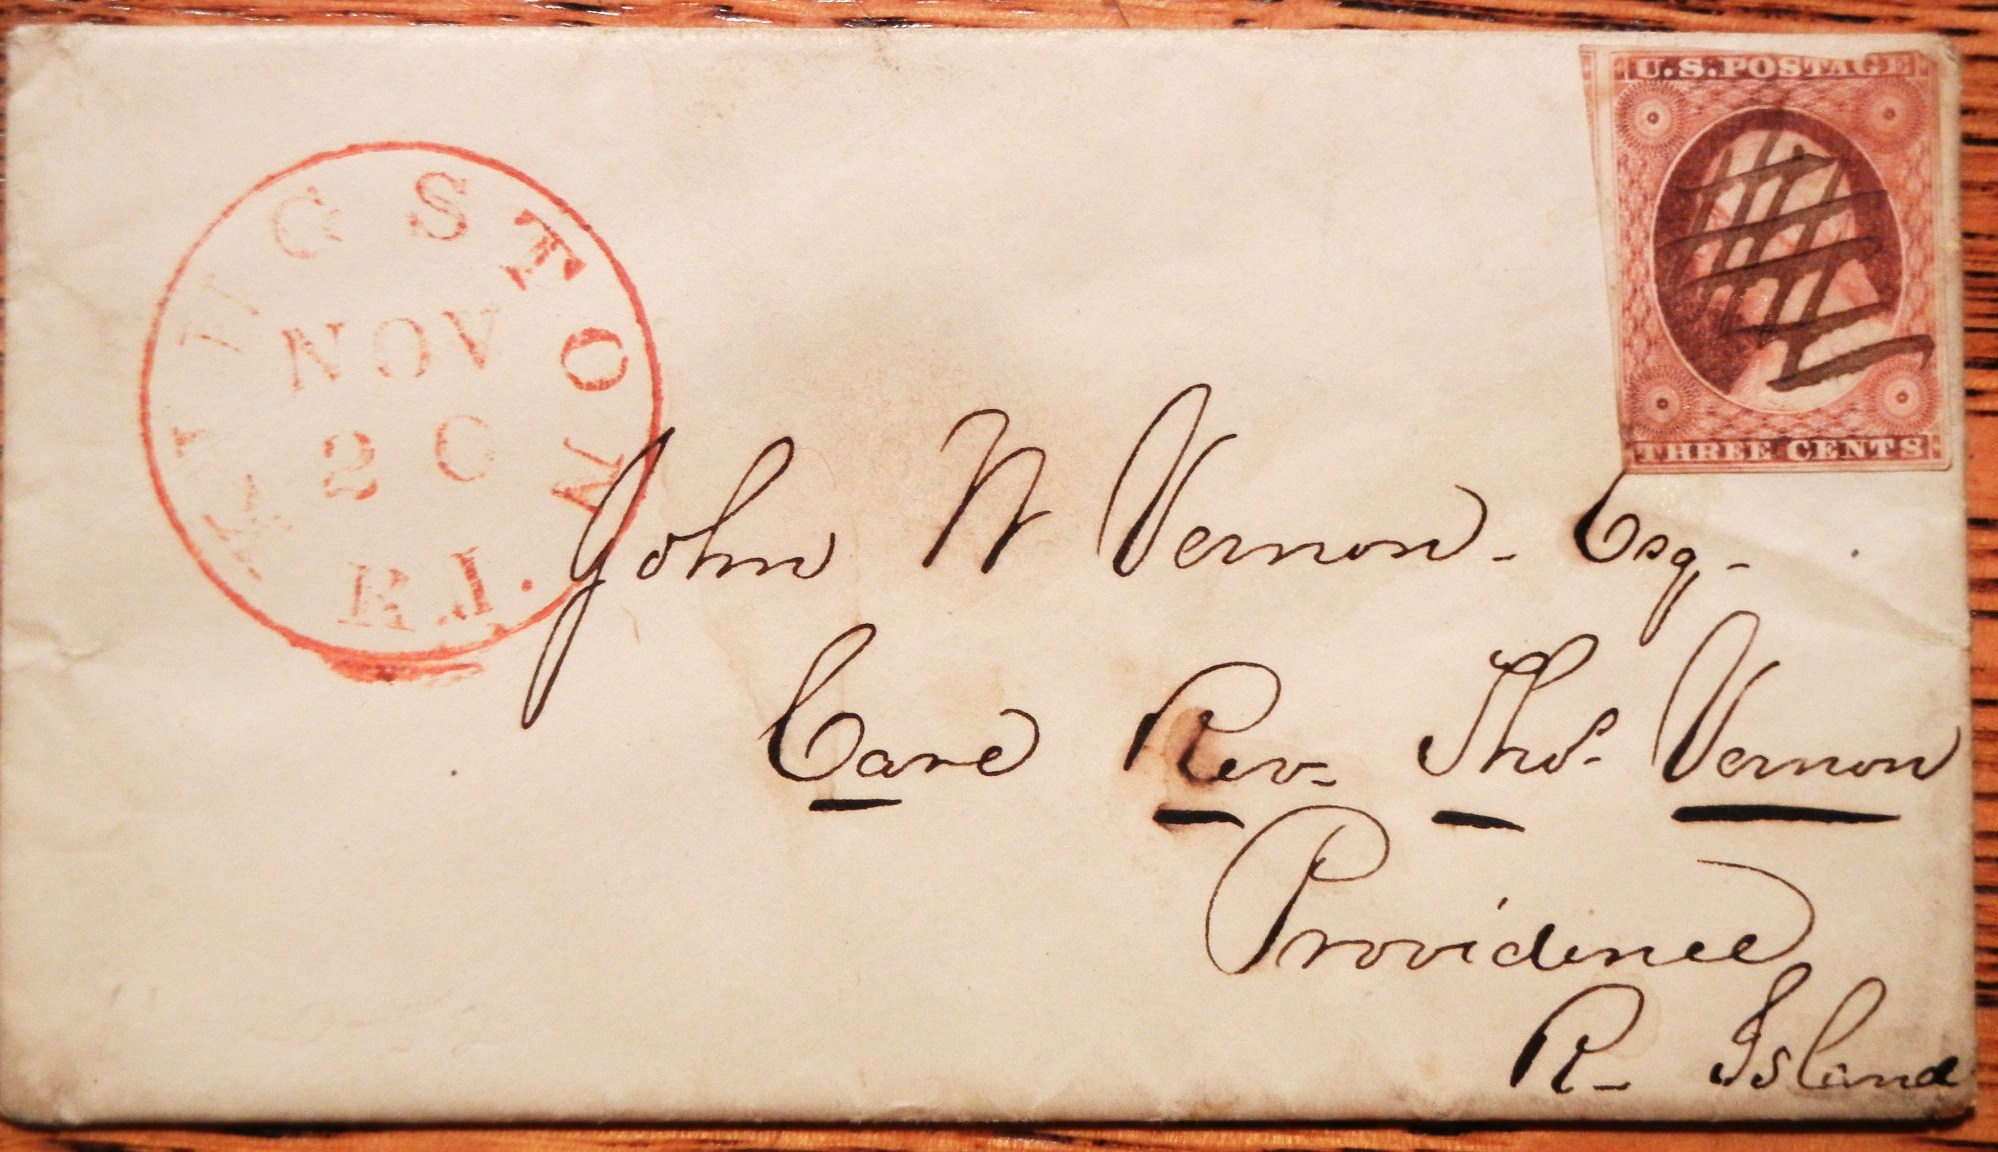 U.S. POSTAGE
THREE CENTS
KINGSTON
NOV
26
R.I.
John W Vernon - Esq -
Care Rev - Thos. Vernon
Providence
R - Island